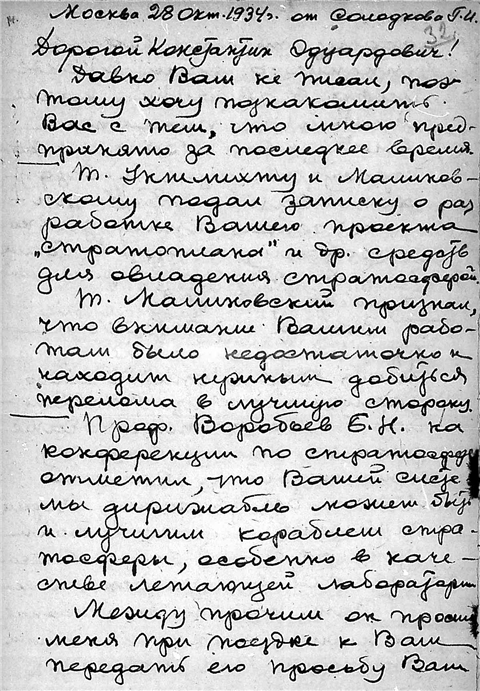 Москва 28 Окт. 1934 г. от Солодкова Г.И.
32
Дорогой Константин Эдуардович!
Давно Вам не писал, поэ-
тому хочу познакомить
Вас с тем, что мною пред-
принято за последнее время.
Т. Уншлихту и Малинов-
скому подал записку о раз
работке Вашего проекта
„стратоплана" и др. средств
для овладения стратосферой.
Т. Малиновский признал,
что внимание Вашим рабо-
там было недостаточно и
находит нужным добиться
перелома в лучшую сторону.
Проф. Воробьев Б.Н. на
конференции по стратосфере
отметил, что Вашей систе
мы дирижабль может быть
и лучшим кораблем стра-
тосферы, особенно в каче-
стве летающей лаборатории
Между прочим он просил
меня при поездке к Вам
передать его просьбу Вам